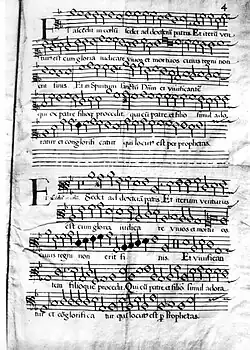 4
Et ascēdit in celū sedet ad dexterā patris Et iterū ven
turus est cum gloria iudicare viuos et mortuos cuius regni non
erit finis Et in Spiritum sanctū Dñm et viuificantē
qui ex patre filioq procedit qui cū patre et filio simul ado
ratur et cōglorifi catur qui locutꝰ est per prophetas
E
Sedet ad dexterā patris Et iterum venturus
est cum gloria iudica re viuos et mortu os
cuius regni non erit fi nis Et viuifican
tem filioque procedit Qui cū patre et filio simul adora
tur et cōglorifica tur qui locutꝰ est ꝑ Prophetas